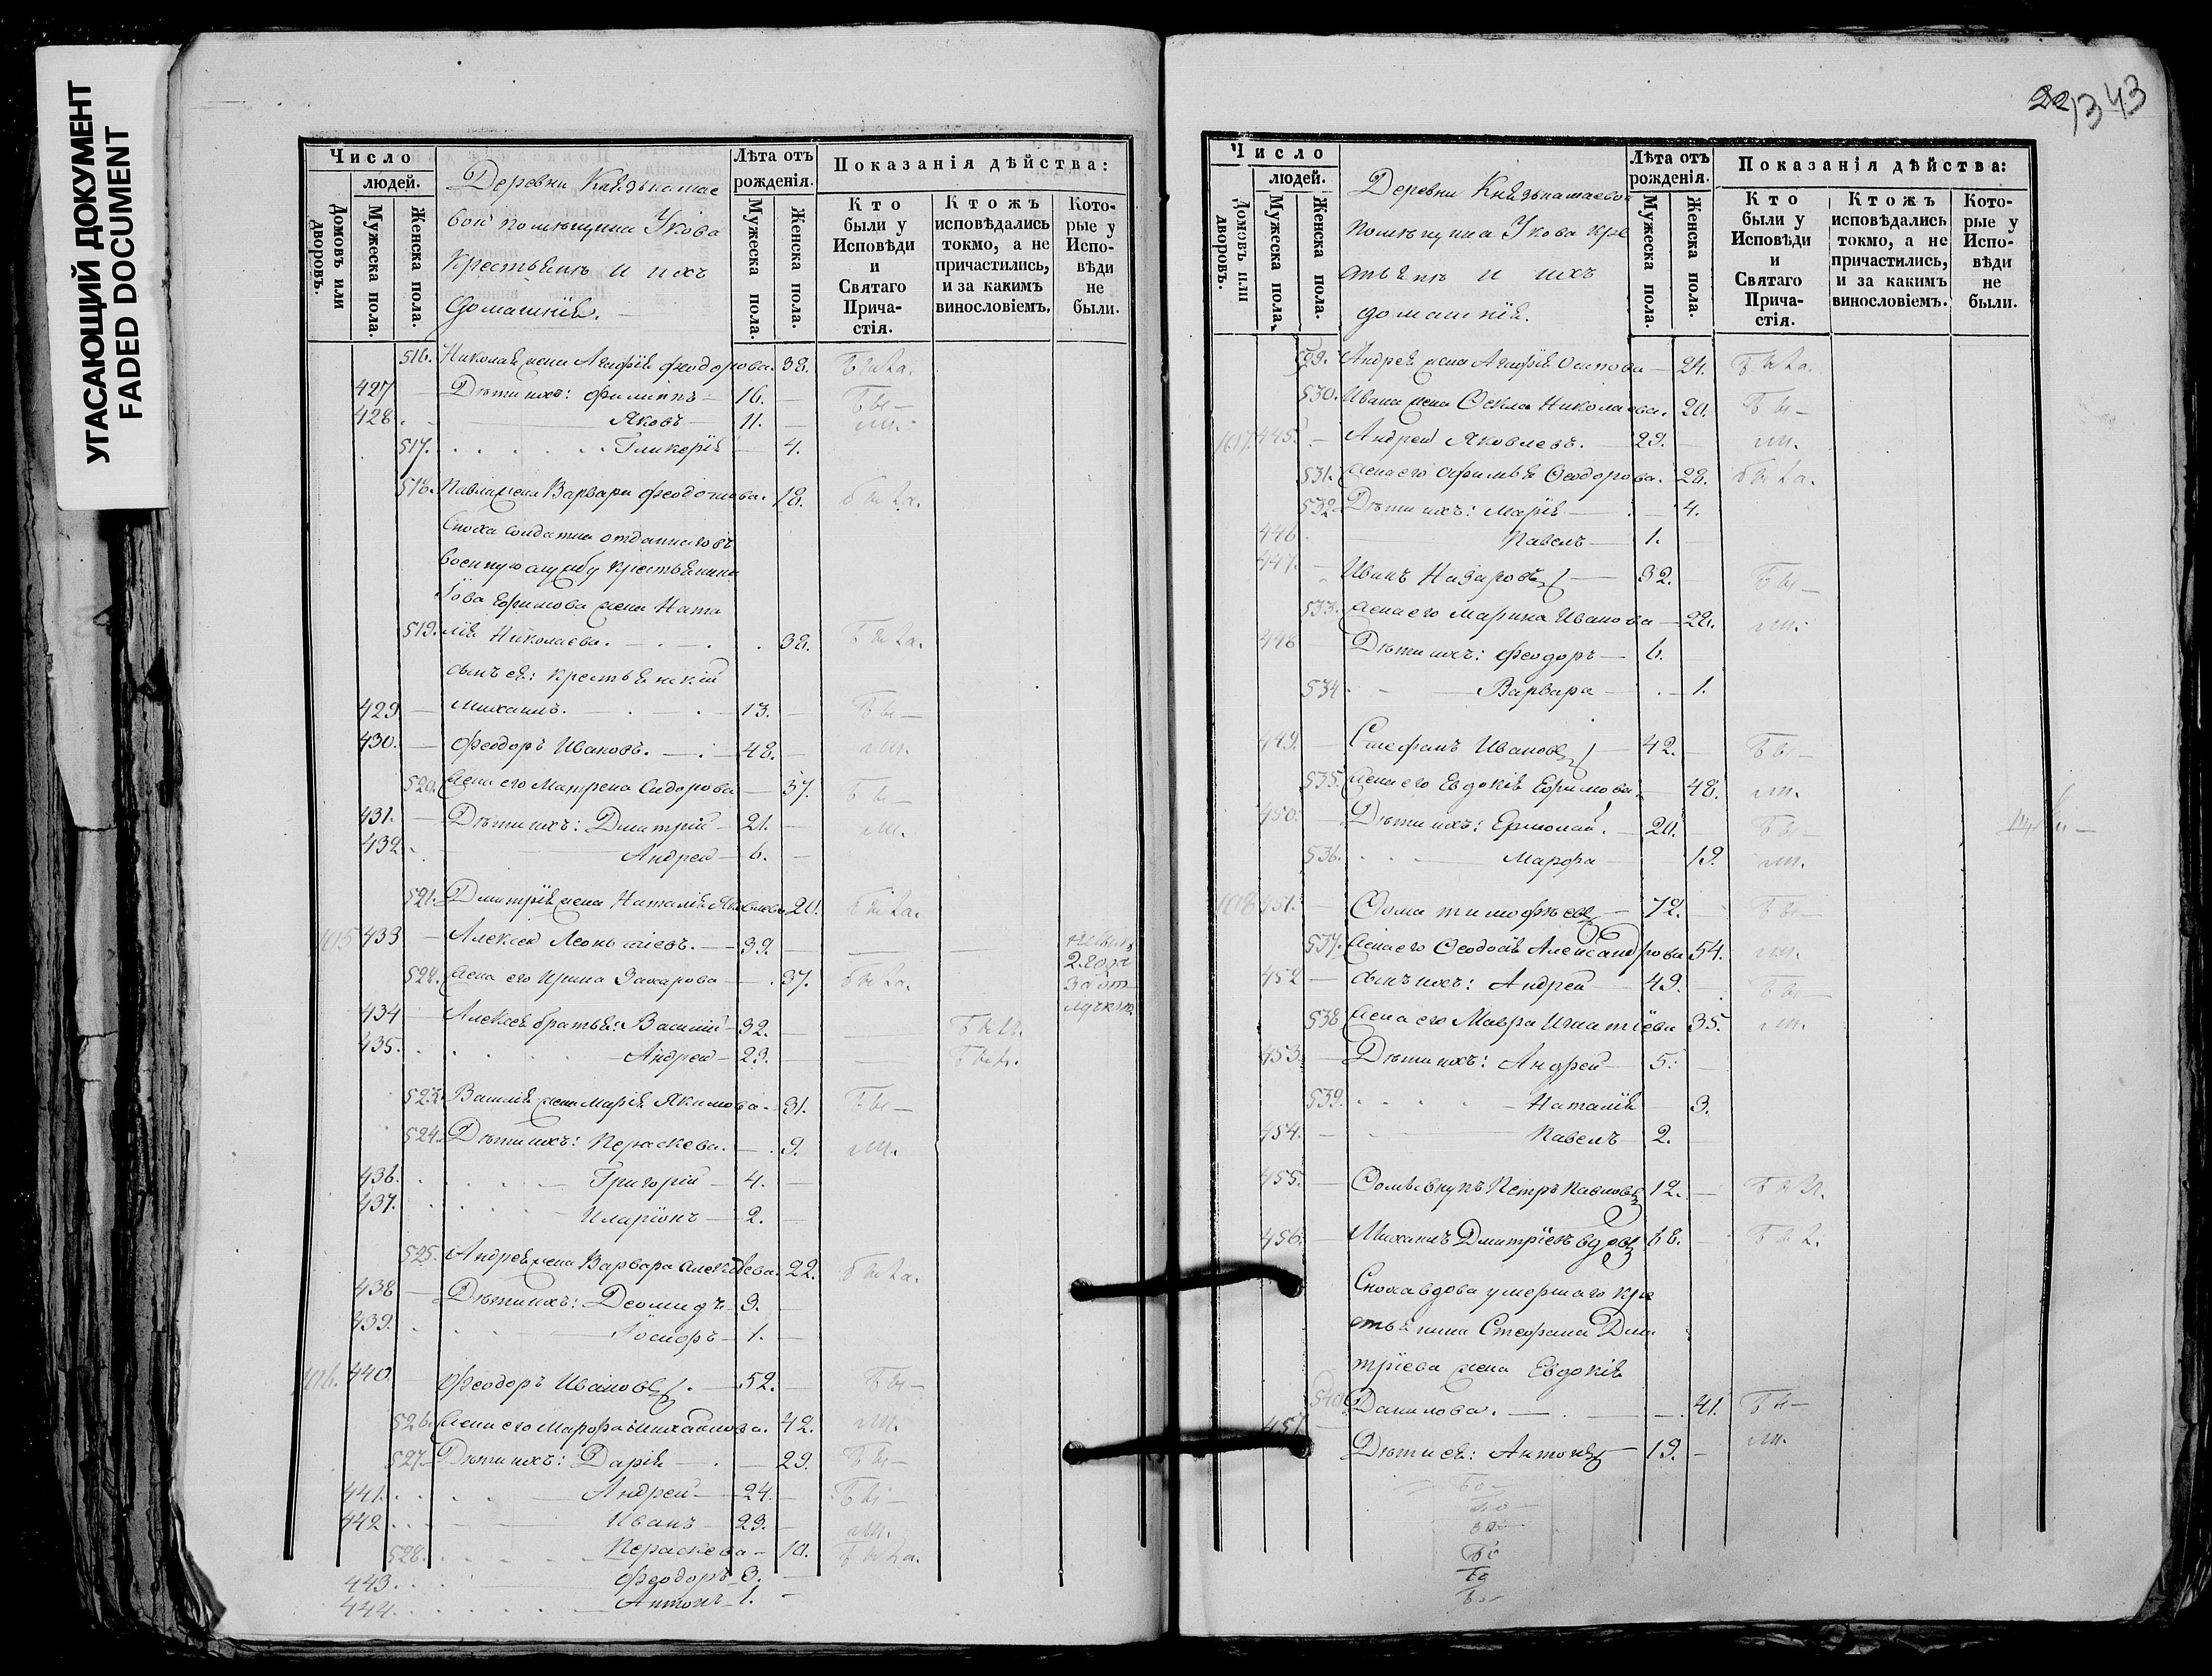 УГАСАЮЩИЙ ДОКУМЕНТ
FADED DOCUMENT
Число
людей.
Домовъ или дворовъ.
Мужеска пола.
Женска пола.
Деревни Князькамае
вой помѣщика Ѵкова
крестьянѣ и ихъ
домашнія.
Лѣта отъ рожденія.
Мужеска пола.
Женска пола.
Показанія дѣйства:
Кто были у Исповѣди и Святаго Прича-стія.
Ктожъ исповѣдались токмо, а не причастились, и за какимъ винословіемъ.
Кото-рые у Испо-вѣди не были.
516. Николая жена Агафія Феодорова. 38.
427 Дѣти ихъ: Филиппъ 16. Бы—
428 Яковъ 11. ли.
517. Гликерія 4.
518. Павла жена Варвара Феодотова. 18.
Сноха солдатка отданнаго въ
военную службу крестьянина
Ефимова жена Ната
519. лія Николаева. 38.
сынъ ея: крестьянскій
429 Михаилъ. 13. Бы—
430. Феодоръ Ивановъ. 48. ли.
520. Жена его Матрена Сидорова 37. Бы—
431. Дѣти ихъ: Дмитрій 21. ли.
432 Андрей 6.
521. Дмитрія жена Наталія Яковлева 20.
1015 433 Алексей Леонътіевъ. 39.
2 года
за от
лучкою
522. Жена его Ирина Захарова 37.
434 Алексея братья: Василій 32.
435. Андрей 23.
523. Василія жена Марія Якимова. 31. Бы—
524. Дѣти ихъ: Пераскева. 9. ли.
436. Григорій 4.
437. Иларіонъ 2.
525. Андрея жена Варвара Алексеева. 22.
438 Дѣти ихъ: Деомидъ 3.
439. 1.
1016. 440 Феодоръ Ивановъ. 52. Бы—
526. Жена его Марфа Михаилова. 42. ли.
527. Дѣти ихъ: Дарія 29. Бы—
441. Андрей 24. Бы—
442 Иванъ 23. ли.
528. Пераскева 10.
443. Феодоръ 3.
444. Антонъ 1.
22
343
Число
людей.
Домовъ или дворовъ.
Мужеска пола.
Женска пола.
Деревни Князькамаевой
помѣщика Ѵкова кре
стьянѣ и ихъ
домашнія.
Лѣта отъ рожденія.
Мужеска пола.
Женска пола.
Показанія дѣйства:
Кто были у Исповѣди и Святаго Прича-стія.
Ктожъ исповѣдались токмо, а не причастились, и за какимъ винословіемъ.
Кото-рые у Испо-вѣди не были.
529. Андрея жена Агафія Осипова 24.
530. Ивана жена Ѳекла Николаева. 20. Бы—
1017 445. Андрей Яковлевъ. 29. ли.
531. Жена его Афимья Ѳеодорова. 28.
532 Дѣти ихъ: Марія 4.
446 Павелъ 1.
447. Иванъ Назаровъ 32. Бы—
533. Жена его Марина Иванова 28. ли.
448 Дѣти ихъ: Феодоръ 6.
534 Варвара 1.
449. Стефанъ Ивановъ 42. Бы—
535. Жена его Евдокія Ефимова. 48. ли.
450. Дѣти ихъ: Ермолай. 20. Бы—
536. Марфа 19. ли.
1018 451. Ѳома Тимофѣевъ 72. Бы—
537. Жена его Ѳеодосія Александрова 54. ли.
452 сынъ ихъ: Андрей 49. Бы—
538 Жена его Мавра Игнатіева 35. ли.
453. Дѣти ихъ: Андрей 5.
539. Наталія 3.
454. Павелъ 2.
455. Ѳомы внукъ Петръ Павловъ 12.
456. Михаилъ Дмитріевъ вдовъ 68.
Сноха вдова умершаго кре
стьянина Стефана Дми
тріева жена Евдокія
540 Данилова. 41.
457 Дѣти ея: Антонъ 19. ли.